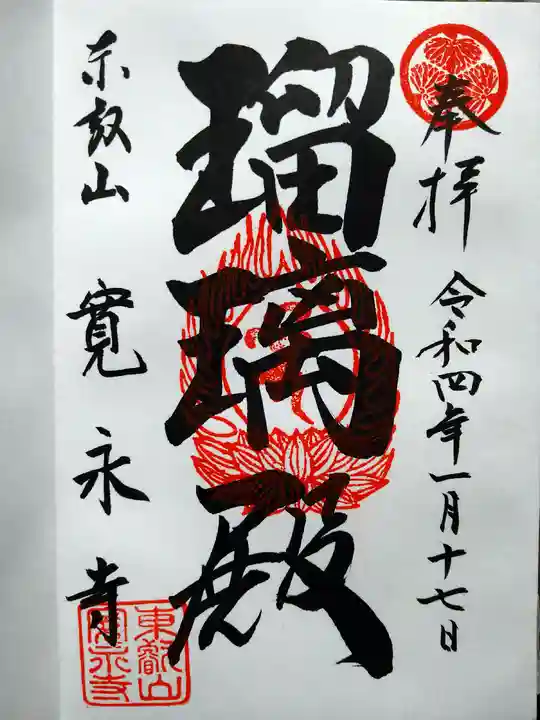 奉拝
令和四年一月十七日
瑠璃殿
東叡山
寛永寺
東叡山
寛永寺